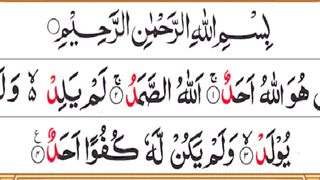 بِسْمِ اللهِ الرَّحْمٰنِ الرَّحِيْمِ
هُوَ اللهُ اَحَدٌ ۚ ﴿۱﴾ اَللهُ الصَّمَدُ ۚ ﴿۲﴾ لَمْ يَلِدْ ۙ۬ وَلَ
يُوْلَدْ ۙ ﴿۳﴾ وَلَمْ يَكُنْ لَّهٗ كُفُوًا اَحَدٌ ﴿۴﴾